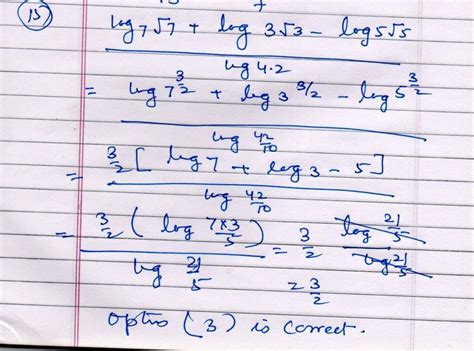 (15)
log 7√7 + log 3√3 - log 5√5
log 4.2
= log 7^3/2 + log 3^3/2 - log 5^3/2
log 42/10
= 3/2 [ log 7 + log 3 - 5 ]
log 42/10
= 3/2 ( log 7×3/5 ) = 3/2 log 21/5
log 21/5 log 21/5
= 3/2
(3) is correct.